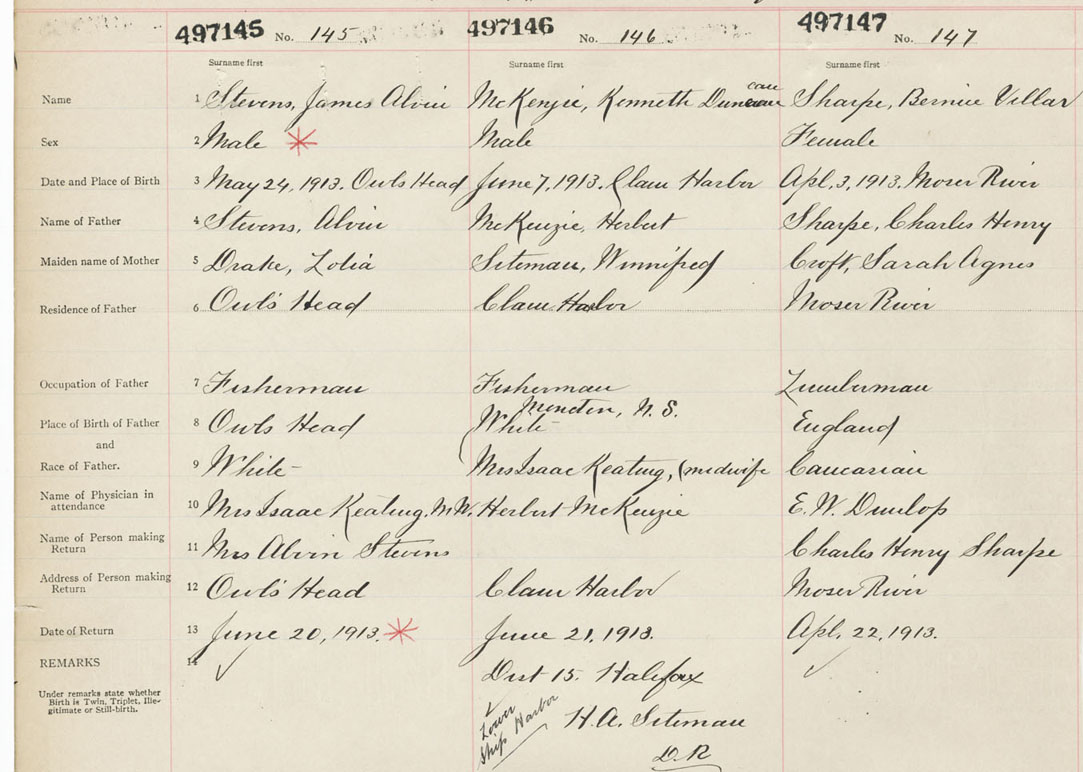 497145 No. 145 497146 No. 146 497147 No. 147
Surname first Surname first Surname first
Name 1 Stevens, James Alvin McKenzie, Kenneth Duncan can Sharpe, Bernice Villar
Sex 2 Male Male Female
Date and Place of Birth 3 May 24, 1913. Owls Head June 7, 1913. Clam Harbor Apl. 3, 1913. Moser River
Name of Father 4 Stevens, Alvin McKenzie, Herbert Sharpe, Charles Henry
Maiden name of Mother 5 Drake, Lolia Siteman, Winnifred Croft, Sarah Agnes
Residence of Father 6 Owl's Head Clam Harbor Moser River
Occupation of Father 7 Fisherman Fisherman Lumberman
Moncton, N.S.
Place of Birth of Father 8 Owls Head White England
and
Race of Father. 9 White Mrs Isaac Keating, (midwife Caucasian
Name of Physician in attendance 10 Mrs Isaac Keating, M.W. Herbert McKenzie E. W. Dunlop
Name of Person making Return 11 Mrs Alvin Stevens Charles Henry Sharpe
Address of Person making Return 12 Owl's Head Clam Harbor Moser River
Date of Return 13 June 20, 1913. June 21, 1913. Apl. 22, 1913.
REMARKS 14 Dist 15. Halifax
Under remarks state whether
Birth is Twin, Triplet, Ille-
gitimate or Still-birth.
Lower
Ship Harbor
H. A. Siteman
D.R